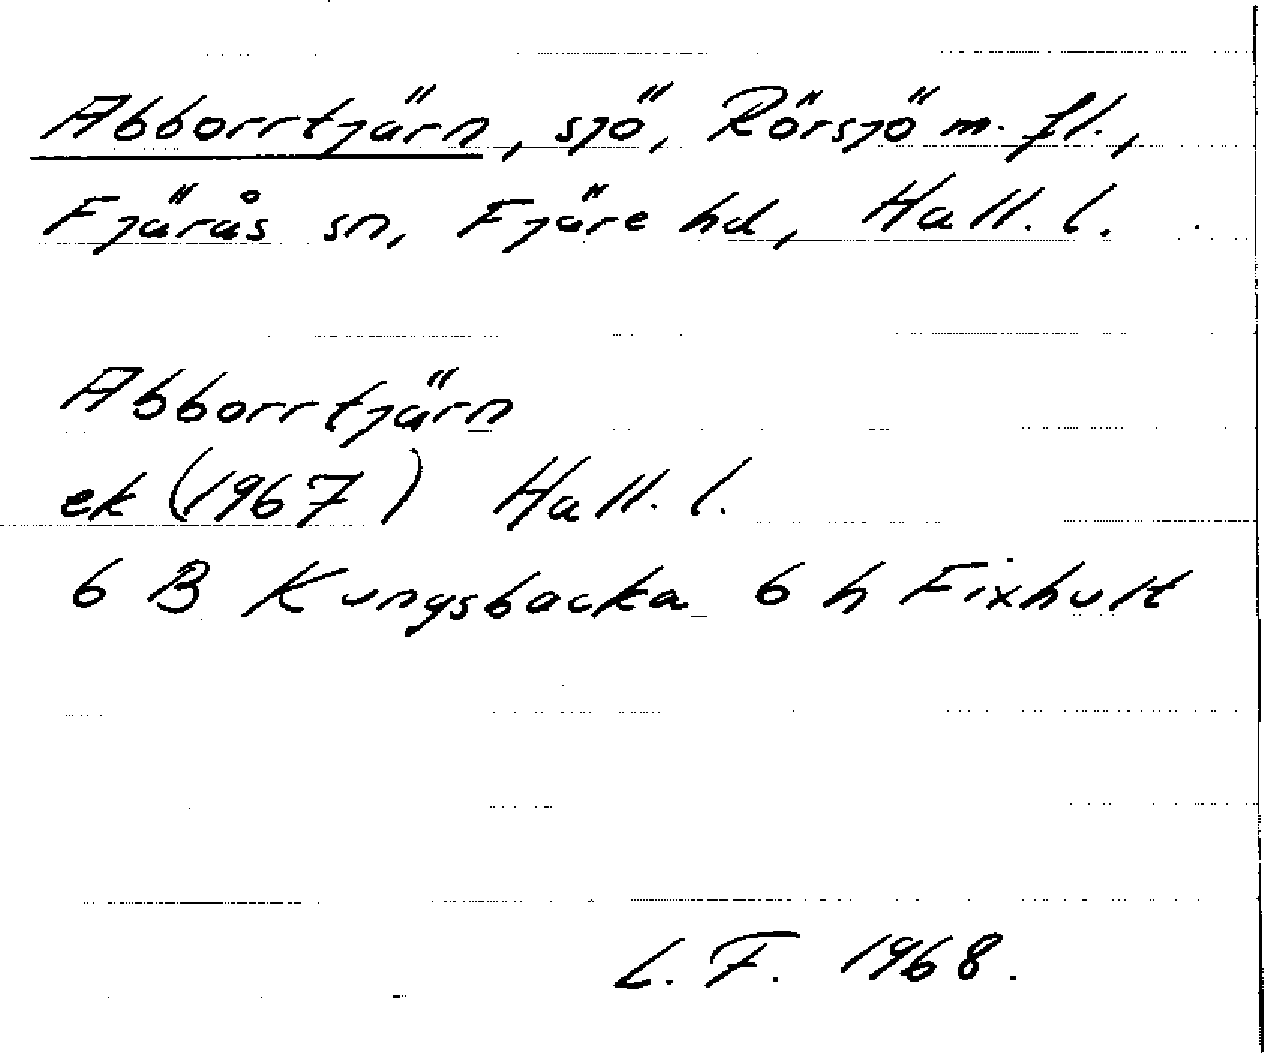 Abborrtjärn, sjö, Rörsjö m. fl.,
Fjärås sn, Fjäre hd, Hall. l.
Abborrtjärn
ek (1967) Hall. l.
6 B Kungsbacka 6 h Fixhult
L. F. 1968.